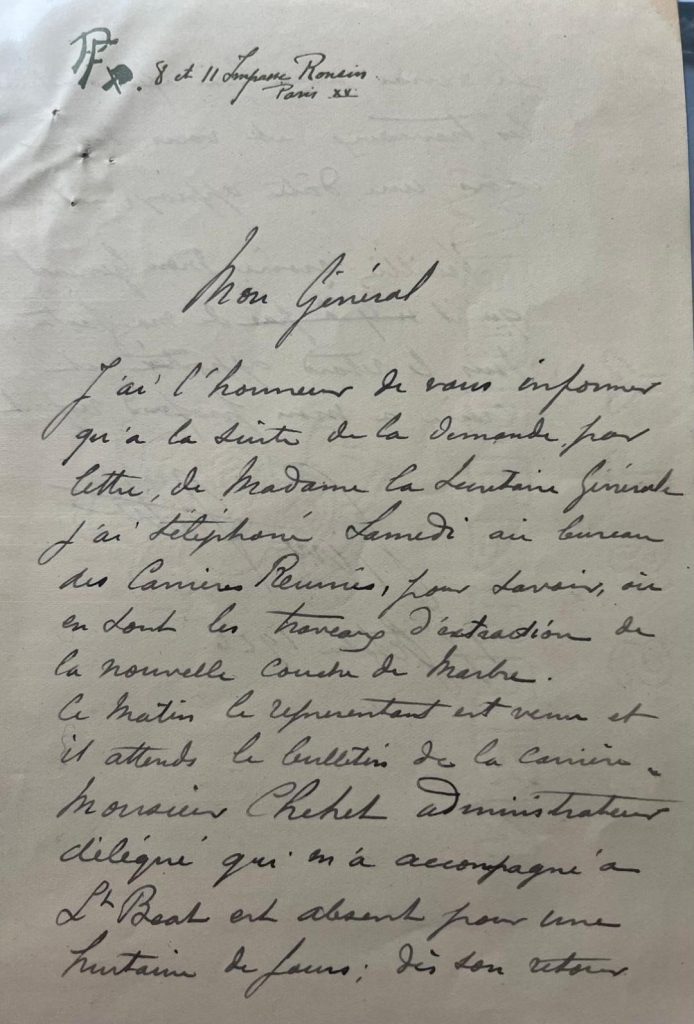 8 et 11 Impasse Ronsin
Paris XV
Mon Général
J'ai l'honneur de vous informer
qu'a la suite de la demande, par
lettre, de Madame la Secretaire Générale
j'ai téléphoné Samedi au bureau
des Carrières Reunies, pour savoir, ou
en sont les traveaux d'extraction de
la nouvelle couche de Marbre.
Ce Matin le representant est venu et
il attends le bulletin de la carrière.
Monsieur Chehet administrateur
délégué qui m'a accompagné a
St Beat est absent pour une
huitaine de jours; dès son retour